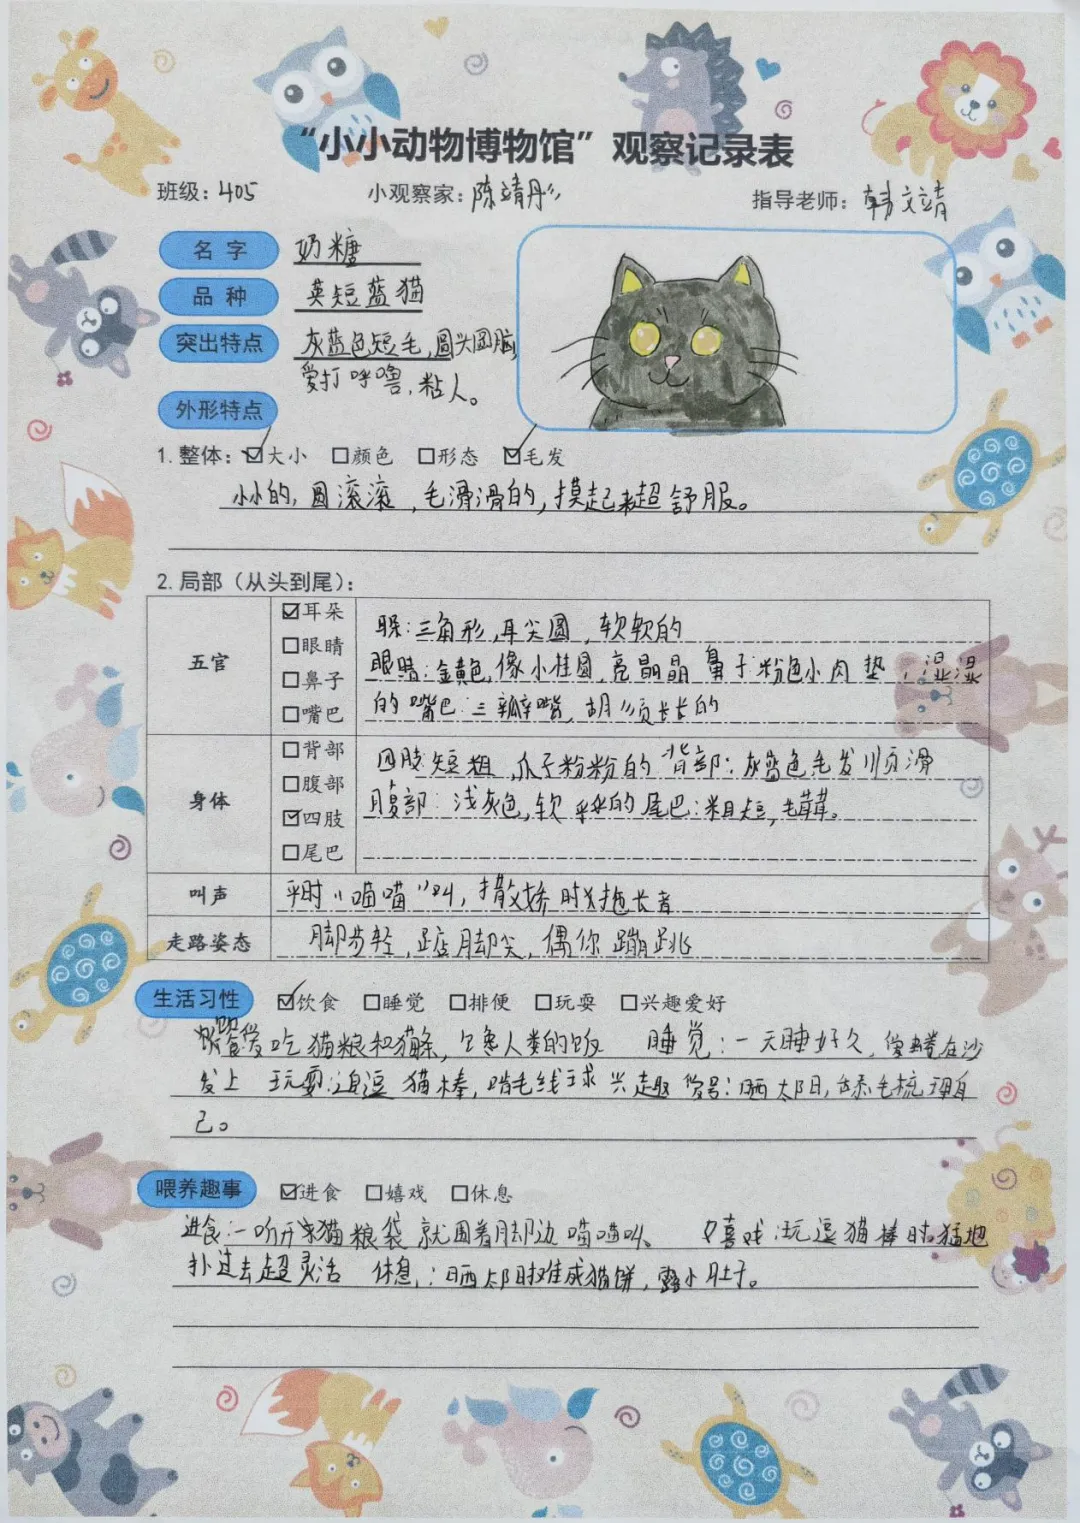 “小小动物博物馆”观察记录表
班级：405 小观察家：陈靖彤 指导老师：韩文靖
名字 奶糖
品种 英短蓝猫
突出特点 灰蓝色短毛，圆头圆脑，
爱打呼噜，粘人。
外形特点
1.整体：☑大小 □颜色 □形态 ☑毛发
小小的，圆滚滚，毛滑滑的，摸起来超舒服。
2.局部（从头到尾）：
五官
☑耳朵
□眼睛
□鼻子
□嘴巴
耳朵：三角形，耳尖圆，软软的
眼睛：金黄色，像小桂圆，亮晶晶 鼻子：粉色小肉垫，湿湿
的 嘴巴：三瓣嘴，胡须长长的
身体
□背部
□腹部
☑四肢
□尾巴
四肢短粗，爪子粉粉的 背部：灰蓝色毛发顺滑
腹部：浅灰色，软乎乎的 尾巴：粗短，毛茸茸。
叫声 平时“喵喵”叫，撒娇时拖长音
走路姿态 脚步轻，踮脚尖，偶你蹦跳
生活习性 ☑饮食 □睡觉 □排便 □玩耍 □兴趣爱好
爱吃猫粮和猫条，人类的饭 睡觉：一天睡好久，蜷在沙
发上 玩耍：追逗猫棒，啃毛线球 兴趣爱好：晒太阳，舔毛梳理自
己。
喂养趣事 ☑进食 □嬉戏 □休息
进食：一听开猫粮袋就围着脚边喵喵叫。 嘻戏：玩逗猫棒时猛地
扑过去超灵活 休息：晒太阳时摊成猫饼，露小肚子。